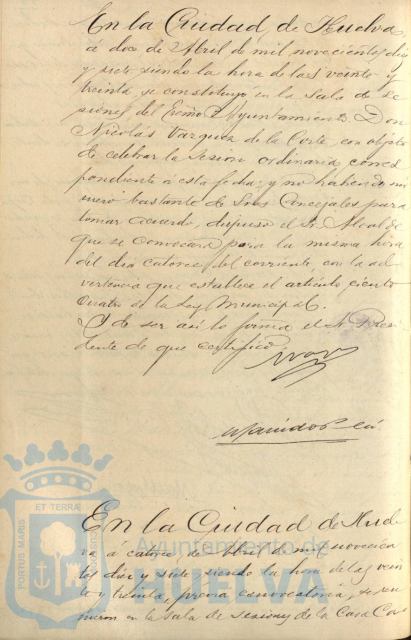 En la Ciudad de Huelva
á doce de Abril de mil novecientos diez
y siete siendo la hora de las veinte y
treinta, se constituyó en la Sala de Se
siones del Excmo Ayuntamiento Don
Nicolás Vazquez de la Corte con objeto
de celebrar la sesion ordinaria corres
pondiente á esta fecha; y no habiendo nú
mero bastante de Sres Concejales para
tomar acuerdo, dispuso el Sr. Alcalde
que se convocara para la misma hora
del dia catorce del corriente con la ad
vertencia que establece el artículo ciento
cuatro de la Ley Municipal.
Y de ser así lo firma el Sr. Presi
dente de que certifico
En la Ciudad de Huel
va a catorce de Abril de mil novecien
tos diez y siete siendo la hora de las vein
te y treinta, previa convocatoria, se reu
nieron en la Sala de sesiones de la Casa Con
PORTUS MARIS ET TERRÆ CUSTODIA
Ayuntamiento de
HUELVA